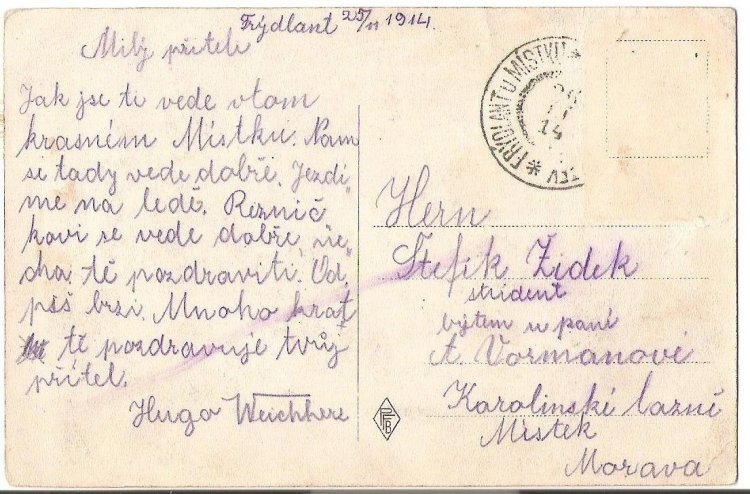 Frýdlant 25/11 1914.
Milý příteli
Jak jse ti vede vtom
krasném Místku. Nam
se tady vede dobře. Jezdí"
me na ledě. Reznič"
kovi se vede dobře, ne"
cha tě pozdraviti. Od"
piš brzi. Mnoho krat
tě pozdravuje tvůj
přítel.
Hugo Weichherz
FRÝDLANT U MÍSTKU
14
Herrn
Štefik Židek
student
bytem u paní
A. Vormanové
Karolinské lazně
Místek
Morava